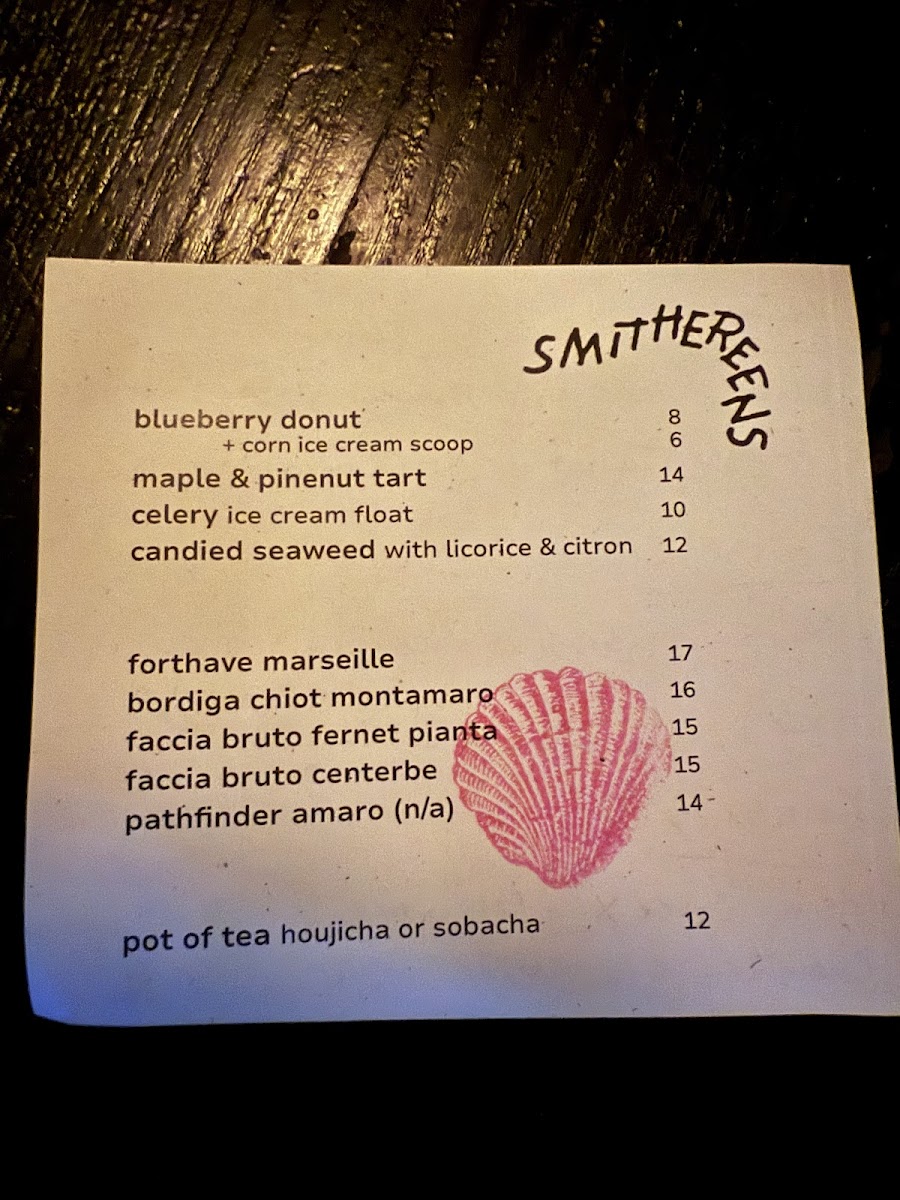 SMITHEREENS
blueberry donut 8
+ corn ice cream scoop 6
maple & pinenut tart 14
celery ice cream float 10
candied seaweed with licorice & citron 12
forthave marseille 17
bordiga chiot montamaro 16
faccia bruto fernet pianta 15
faccia bruto centerbe 15
pathfinder amaro (n/a) 14
pot of tea houjicha or sobacha 12